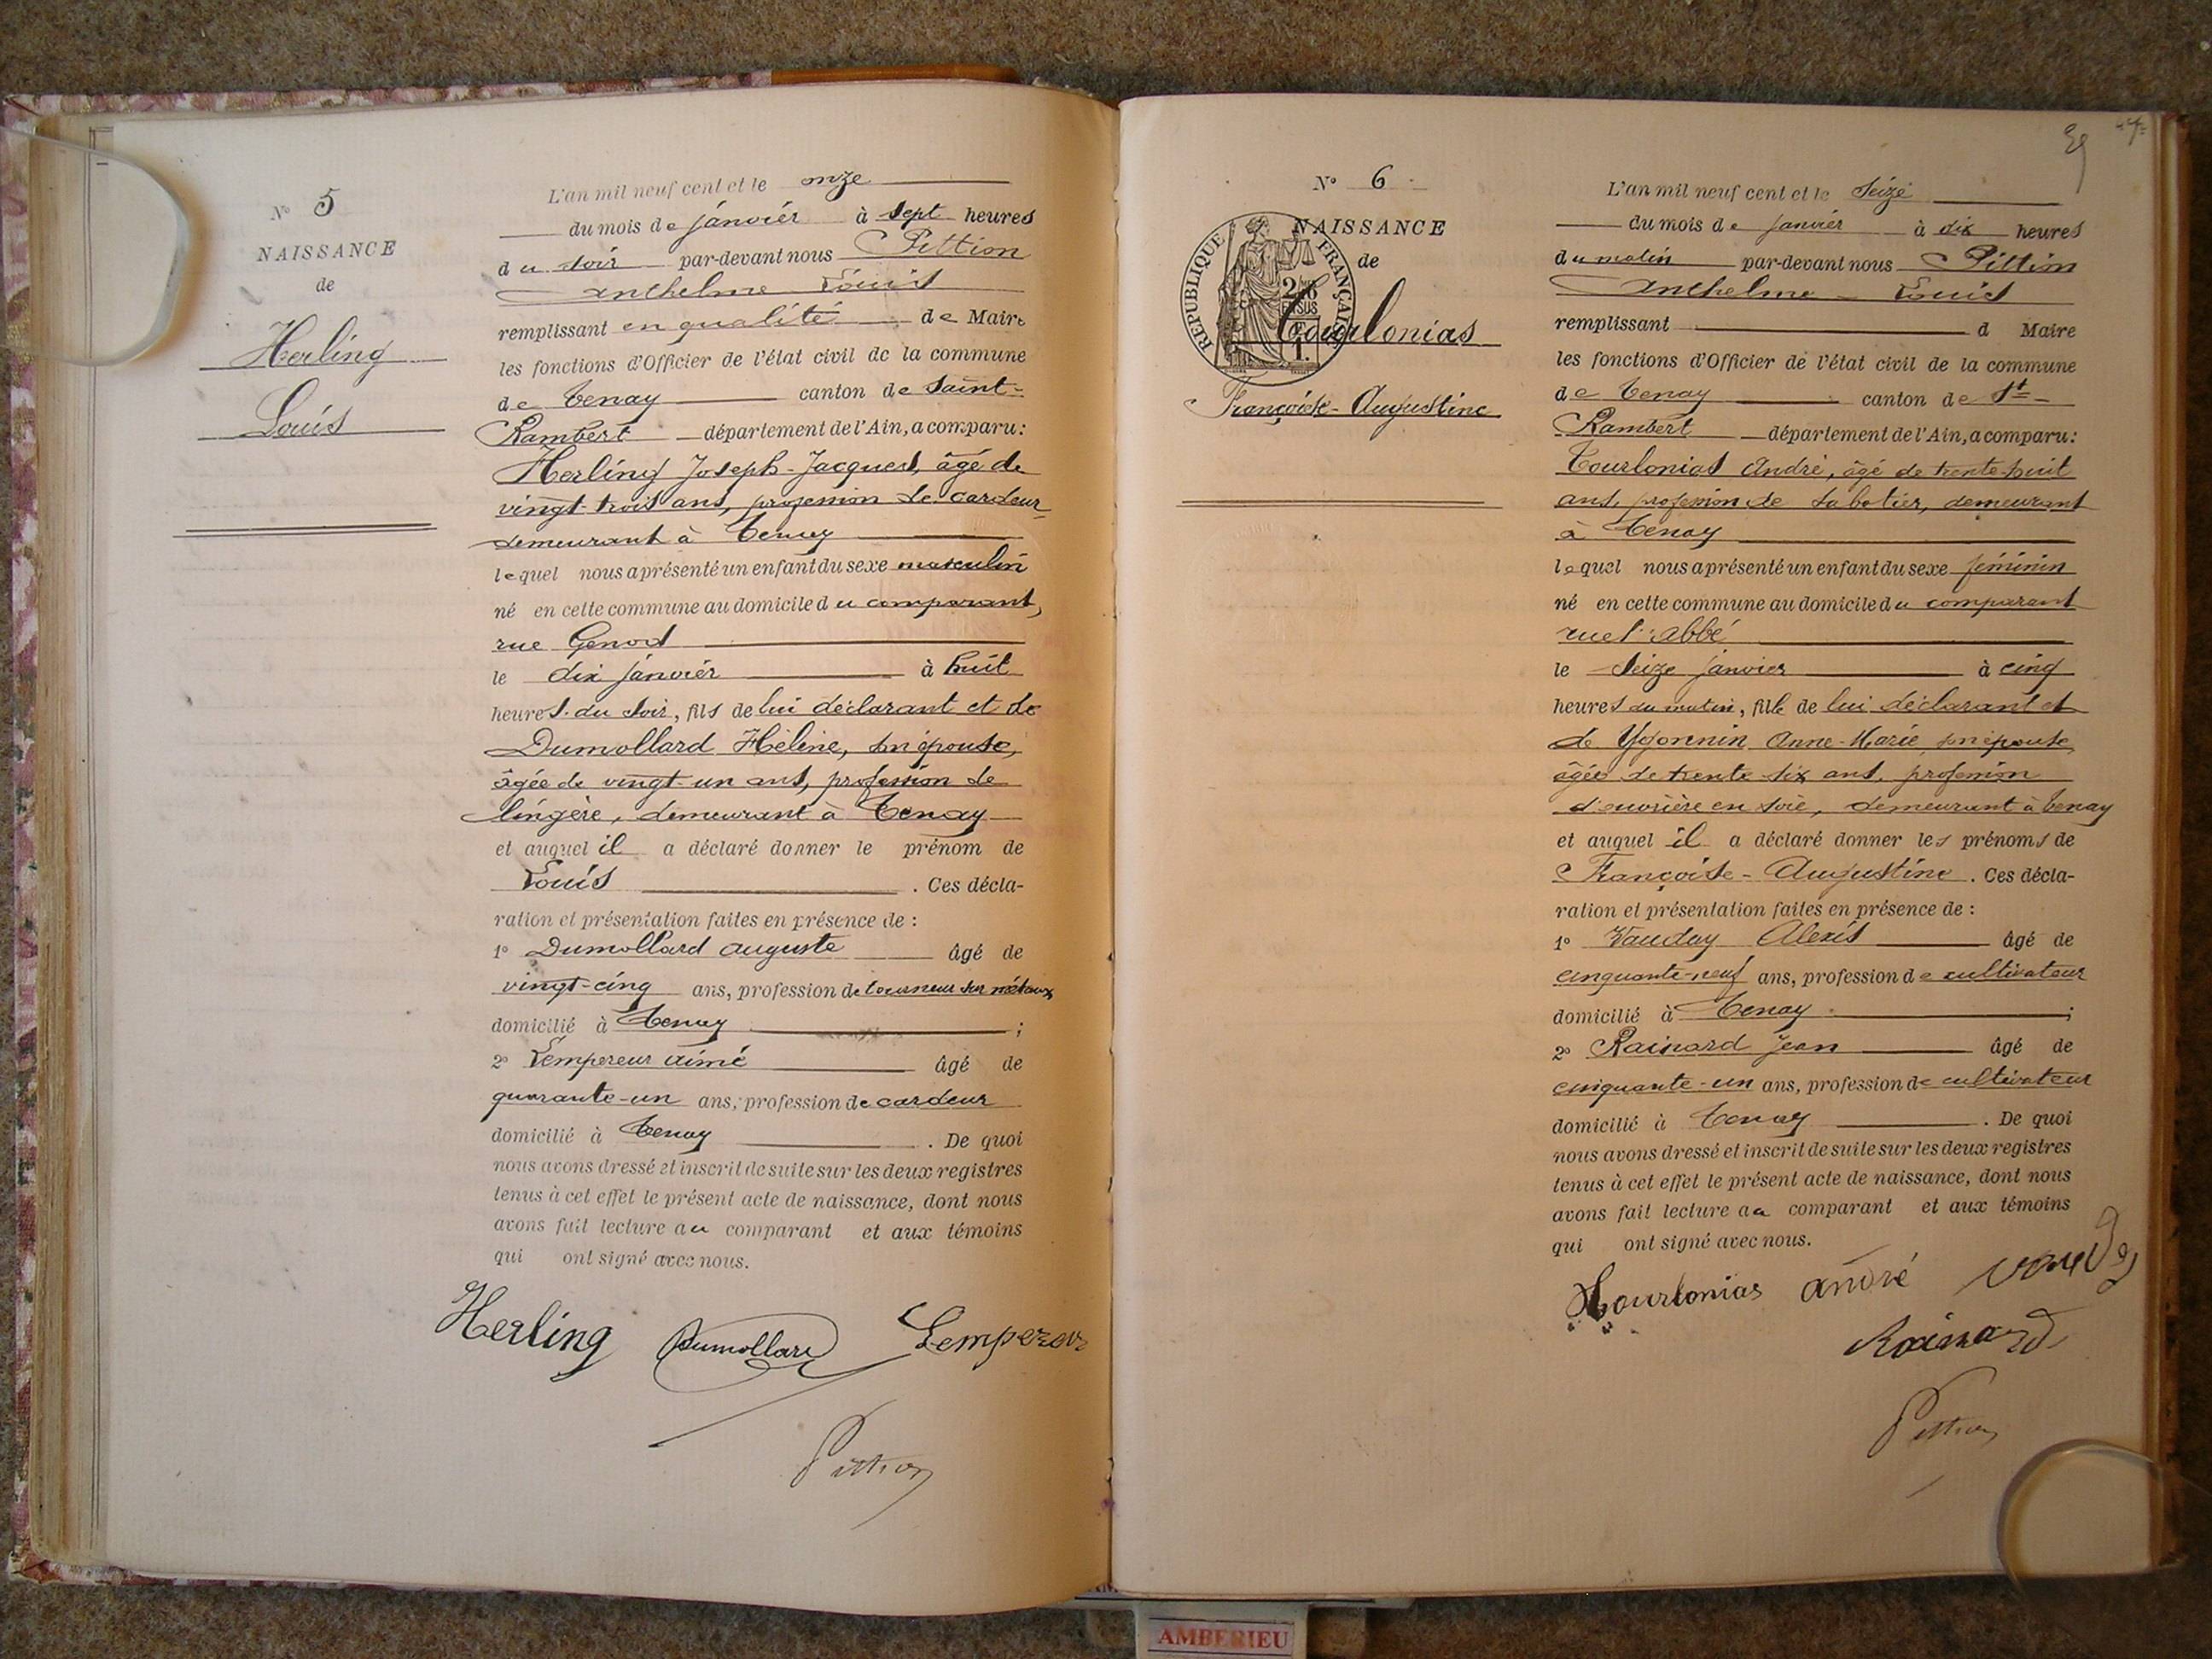 N° 5
NAISSANCE
de
Herling
Louis
L'an mil neuf cent et le onze
du mois de janvier à sept heures
du soir par-devant nous Pittion
Anthelme Louis
remplissant en qualité de Maire
les fonctions d'Officier de l'état civil de la commune
de Tenay canton de Saint-
Rambert département de l'Ain, a comparu:
Herling Joseph-Jacques, âgé de
vingt-trois ans, profession de cardeur
demeurant à Tenay
lequel nous a présenté un enfant du sexe masculin
né en cette commune au domicile du comparant,
rue Genod
le dix janvier à huit
heures du soir, fils de lui déclarant et de
Dumollard Hélène, son épouse,
âgée de vingt-un ans, profession de
lingère, demeurant à Tenay
et auquel il a déclaré donner le prénom de
Louis . Ces décla-
ration et présentation faites en présence de :
1° Dumollard Auguste âgé de
vingt-cinq ans, profession de tourneur sur métaux
domicilié à Tenay ;
2° Lempereur Aimé âgé de
quarante-un ans, profession de cardeur
domicilié à Tenay . De quoi
nous avons dressé et inscrit de suite sur les deux registres
tenus à cet effet le présent acte de naissance, dont nous
avons fait lecture au comparant et aux témoins
qui ont signé avec nous.
Herling Dumollard Lempereur
Pittion
N° 6
NAISSANCE
de
RÉPUBLIQUE FRANÇAISE
Tourlonias
Françoise-Augustine
L'an mil neuf cent et le seize
du mois de janvier à dix heures
du matin par-devant nous Pittion
Anthelme-Louis
remplissant d Maire
les fonctions d'Officier de l'état civil de la commune
de Tenay canton de St-
Rambert département de l'Ain, a comparu:
Tourlonias André, âgé de trente-huit
ans, profession de sabotier, demeurant
à Tenay
lequel nous a présenté un enfant du sexe féminin
né en cette commune au domicile du comparant
rue l'abbé
le seize janvier à cinq
heures du matin, fille de lui déclarant et
de Ygonnin Anne-Marie, son épouse,
âgée de trente-six ans, profession
d'ouvrière en soie, demeurant à Tenay
et auquel il a déclaré donner les prénoms de
Françoise-Augustine . Ces décla-
ration et présentation faites en présence de :
1° Vauday Alexis âgé de
cinquante-neuf ans, profession de cultivateur
domicilié à Tenay ;
2° Rainard Jean âgé de
cinquante-un ans, profession de cultivateur
domicilié à Tenay . De quoi
nous avons dressé et inscrit de suite sur les deux registres
tenus à cet effet le présent acte de naissance, dont nous
avons fait lecture au comparant et aux témoins
qui ont signé avec nous.
Tourlonias André Vauday
Rainard
Pittion
AMBERIEU